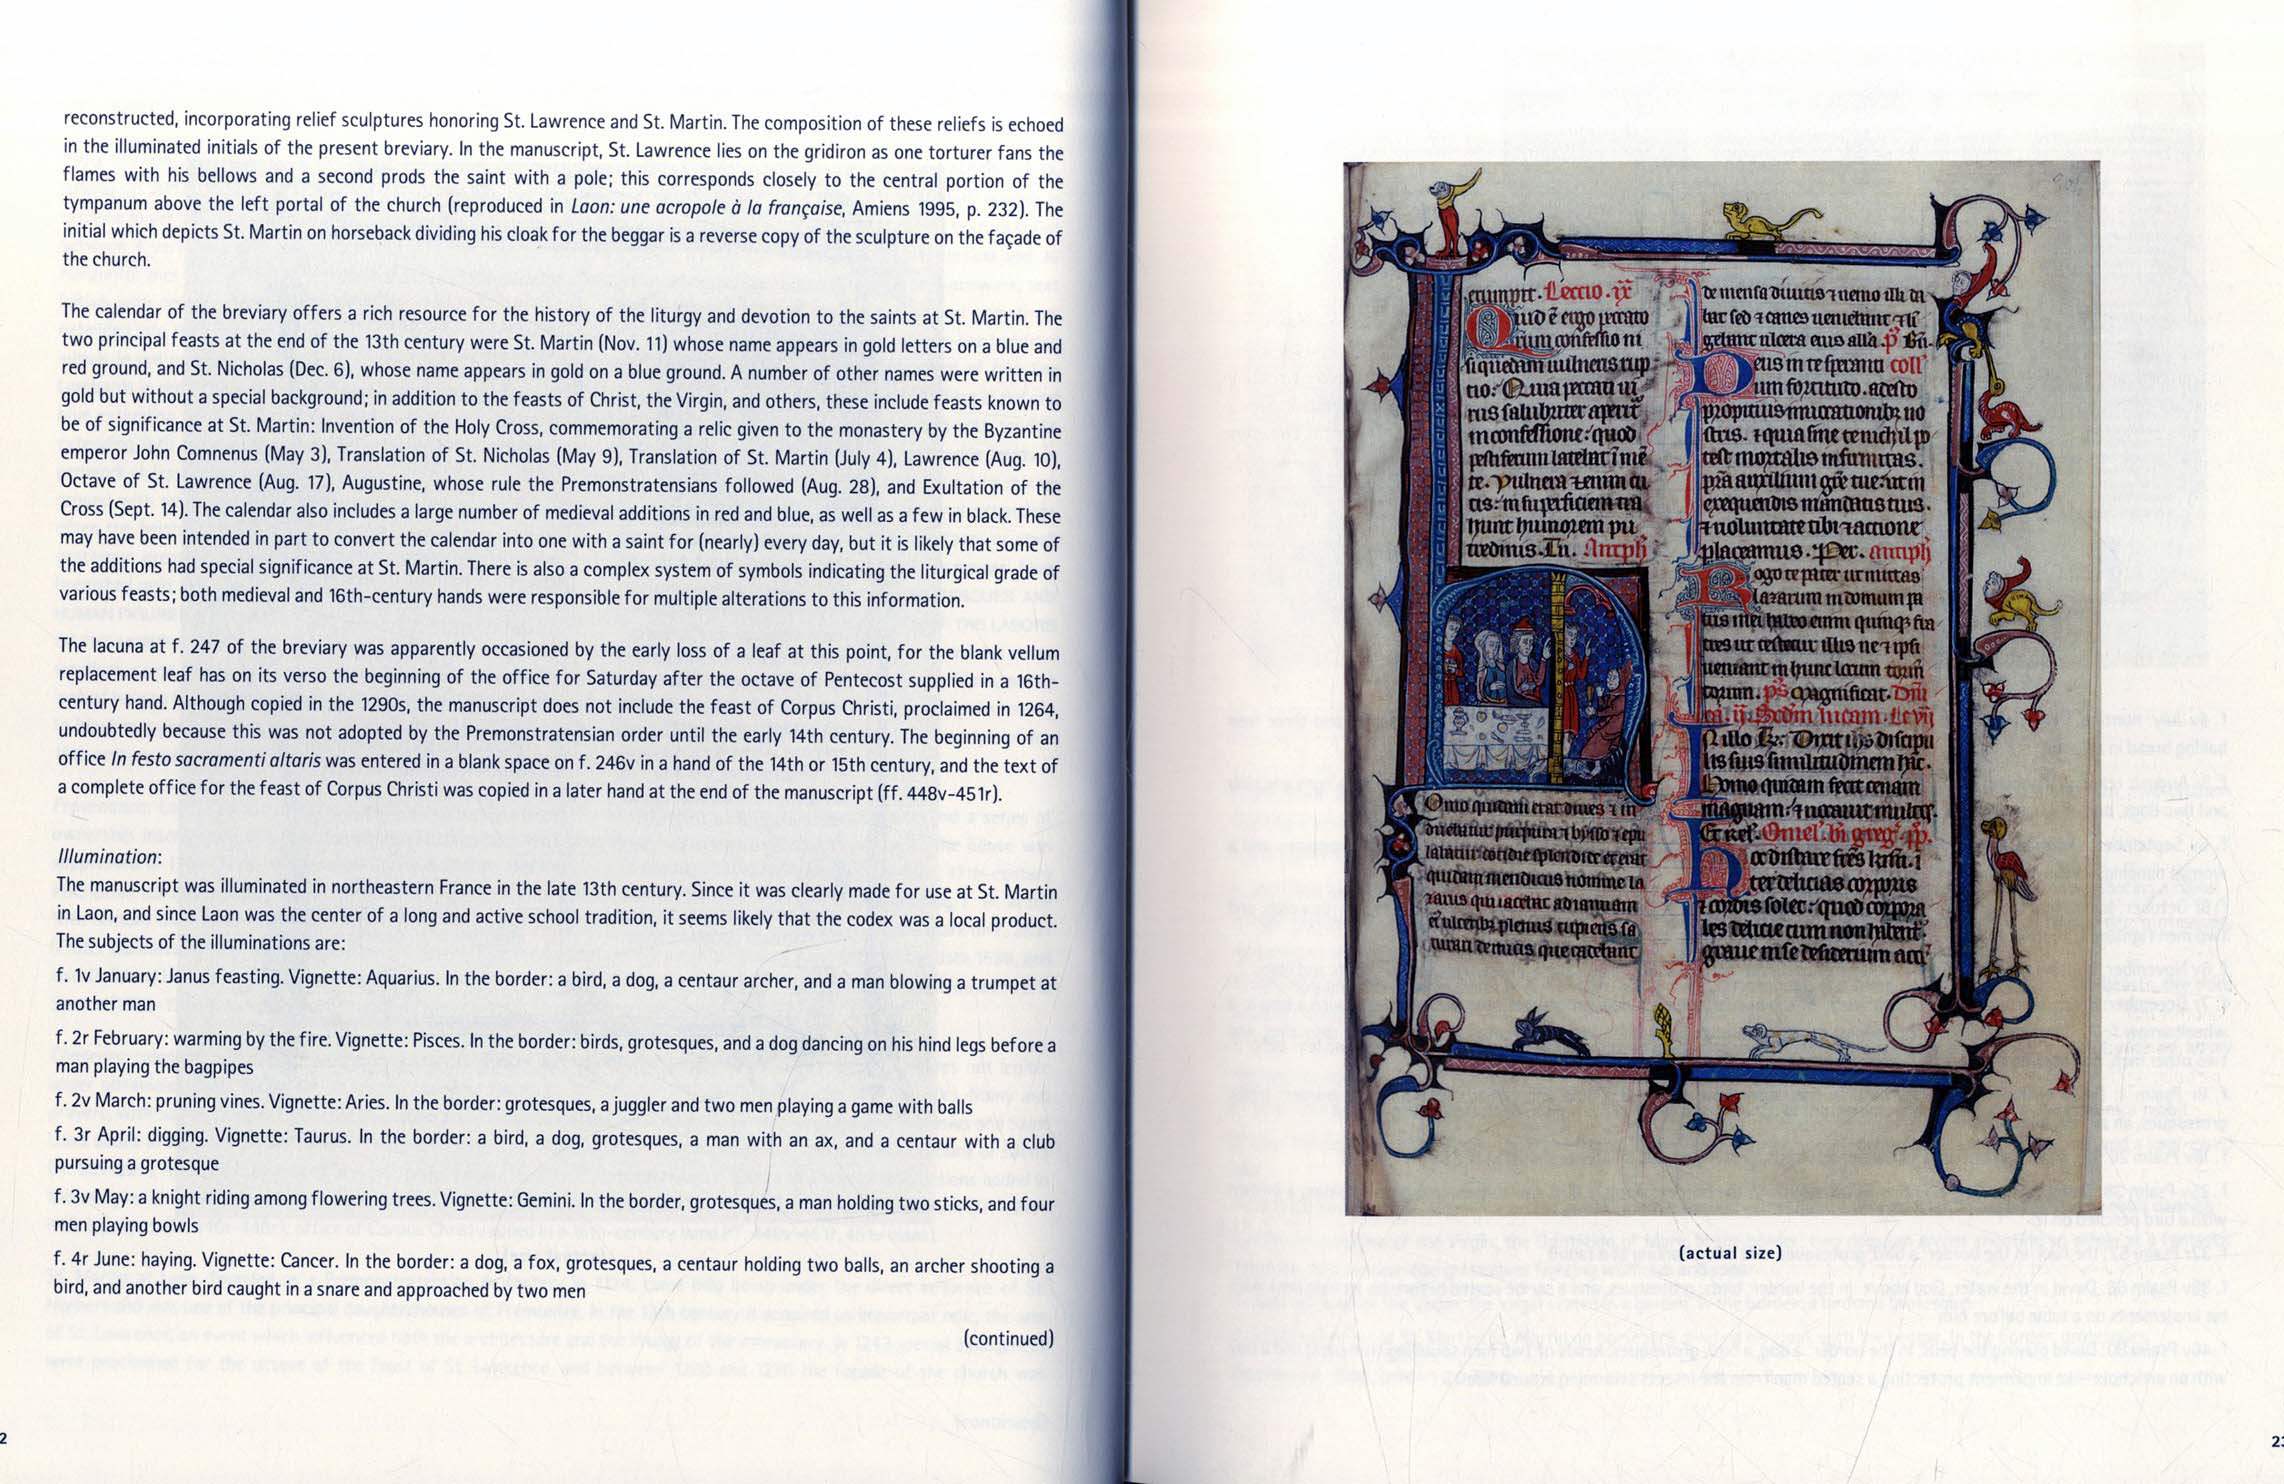 reconstructed, incorporating relief sculptures honoring St. Lawrence and St. Martin. The composition of these reliefs is echoed
in the illuminated initials of the present breviary. In the manuscript, St. Lawrence lies on the gridiron as one torturer fans the
flames with his bellows and a second prods the saint with a pole; this corresponds closely to the central portion of the
tympanum above the left portal of the church (reproduced in Laon: une acropole à la française, Amiens 1995, p. 232). The
initial which depicts St. Martin on horseback dividing his cloak for the beggar is a reverse copy of the sculpture on the façade of
the church.
The calendar of the breviary offers a rich resource for the history of the liturgy and devotion to the saints at St. Martin. The
two principal feasts at the end of the 13th century were St. Martin (Nov. 11) whose name appears in gold letters on a blue and
red ground, and St. Nicholas (Dec. 6), whose name appears in gold on a blue ground. A number of other names were written in
gold but without a special background; in addition to the feasts of Christ, the Virgin, and others, these include feasts known to
be of significance at St. Martin: Invention of the Holy Cross, commemorating a relic given to the monastery by the Byzantine
emperor John Comnenus (May 3), Translation of St. Nicholas (May 9), Translation of St. Martin (July 4), Lawrence (Aug. 10),
Octave of St. Lawrence (Aug. 17), Augustine, whose rule the Premonstratensians followed (Aug. 28), and Exultation of the
Cross (Sept. 14). The calendar also includes a large number of medieval additions in red and blue, as well as a few in black. These
may have been intended in part to convert the calendar into one with a saint for (nearly) every day, but it is likely that some of
the additions had special significance at St. Martin. There is also a complex system of symbols indicating the liturgical grade of
various feasts; both medieval and 16th-century hands were responsible for multiple alterations to this information.
The lacuna at f. 247 of the breviary was apparently occasioned by the early loss of a leaf at this point, for the blank vellum
replacement leaf has on its verso the beginning of the office for Saturday after the octave of Pentecost supplied in a 16th-
century hand. Although copied in the 1290s, the manuscript does not include the feast of Corpus Christi, proclaimed in 1264,
undoubtedly because this was not adopted by the Premonstratensian order until the early 14th century. The beginning of an
office In festo sacramenti altaris was entered in a blank space on f. 246v in a hand of the 14th or 15th century, and the text of
a complete office for the feast of Corpus Christi was copied in a later hand at the end of the manuscript (ff. 448v-451r).
Illumination:
The manuscript was illuminated in northeastern France in the late 13th century. Since it was clearly made for use at St. Martin
in Laon, and since Laon was the center of a long and active school tradition, it seems likely that the codex was a local product.
The subjects of the illuminations are:
f. 1v January: Janus feasting. Vignette: Aquarius. In the border: a bird, a dog, a centaur archer, and a man blowing a trumpet at
another man
f. 2r February: warming by the fire. Vignette: Pisces. In the border: birds, grotesques, and a dog dancing on his hind legs before a
man playing the bagpipes
f. 2v March: pruning vines. Vignette: Aries. In the border: grotesques, a juggler and two men playing a game with balls
f. 3r April: digging. Vignette: Taurus. In the border: a bird, a dog, grotesques, a man with an ax, and a centaur with a club
pursuing a grotesque
f. 3v May: a knight riding among flowering trees. Vignette: Gemini. In the border, grotesques, a man holding two sticks, and four
men playing bowls
f. 4r June: haying. Vignette: Cancer. In the border: a dog, a fox, grotesques, a centaur holding two balls, an archer shooting a
bird, and another bird caught in a snare and approached by two men
(continued)
2
Lectio . ix
Quid e ergo peccato
rum confessio ni
si quedam vulneris rup
tio
in confessione : quod
hunt humorem pu
Omo quidam erat dives
quidam mendicus nomine la
de mensa divitis nemo illi da
bat sed canes veniebant
Deus in te sperantium
placeamus . Per .
Rogo te pater ut mittas
lazarum in domum pa
Magnificat .
lis suis similitudinem hanc .
Homo quidam fecit cenam
magnam
inter delicias corporis
cordis solet : quod corpora
les delicie cum non habent
grave in se desiderium
(actual size)
23